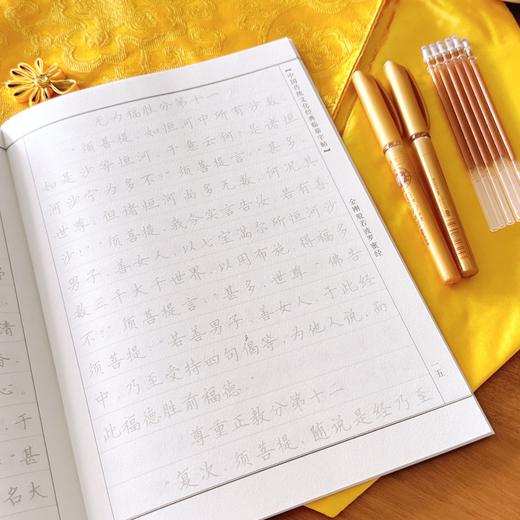 无为福胜分第十一
“须菩提，如恒河中所有沙数，
如是沙等恒河，于意云何？是诸恒
河沙宁为多不？”须菩提言：“甚多，
世尊！但诸恒河尚多无数，何况其
沙！”“须菩提，我今实言告汝：若有善
男子、善女人，以七宝满尔所恒河沙
数三千大千世界，以用布施，得福多
不？”须菩提言：“甚多，世尊！”佛告
须菩提：“若善男子、善女人，于此经
中，乃至受持四句偈等，为他人说，而
此福德胜前福德。”
尊重正教分第十二
“复次，须菩提，随说是经乃至
【中国传统文化经典临摹字帖】
金刚般若波罗蜜经
一五
清
心
，于
“甚
名大